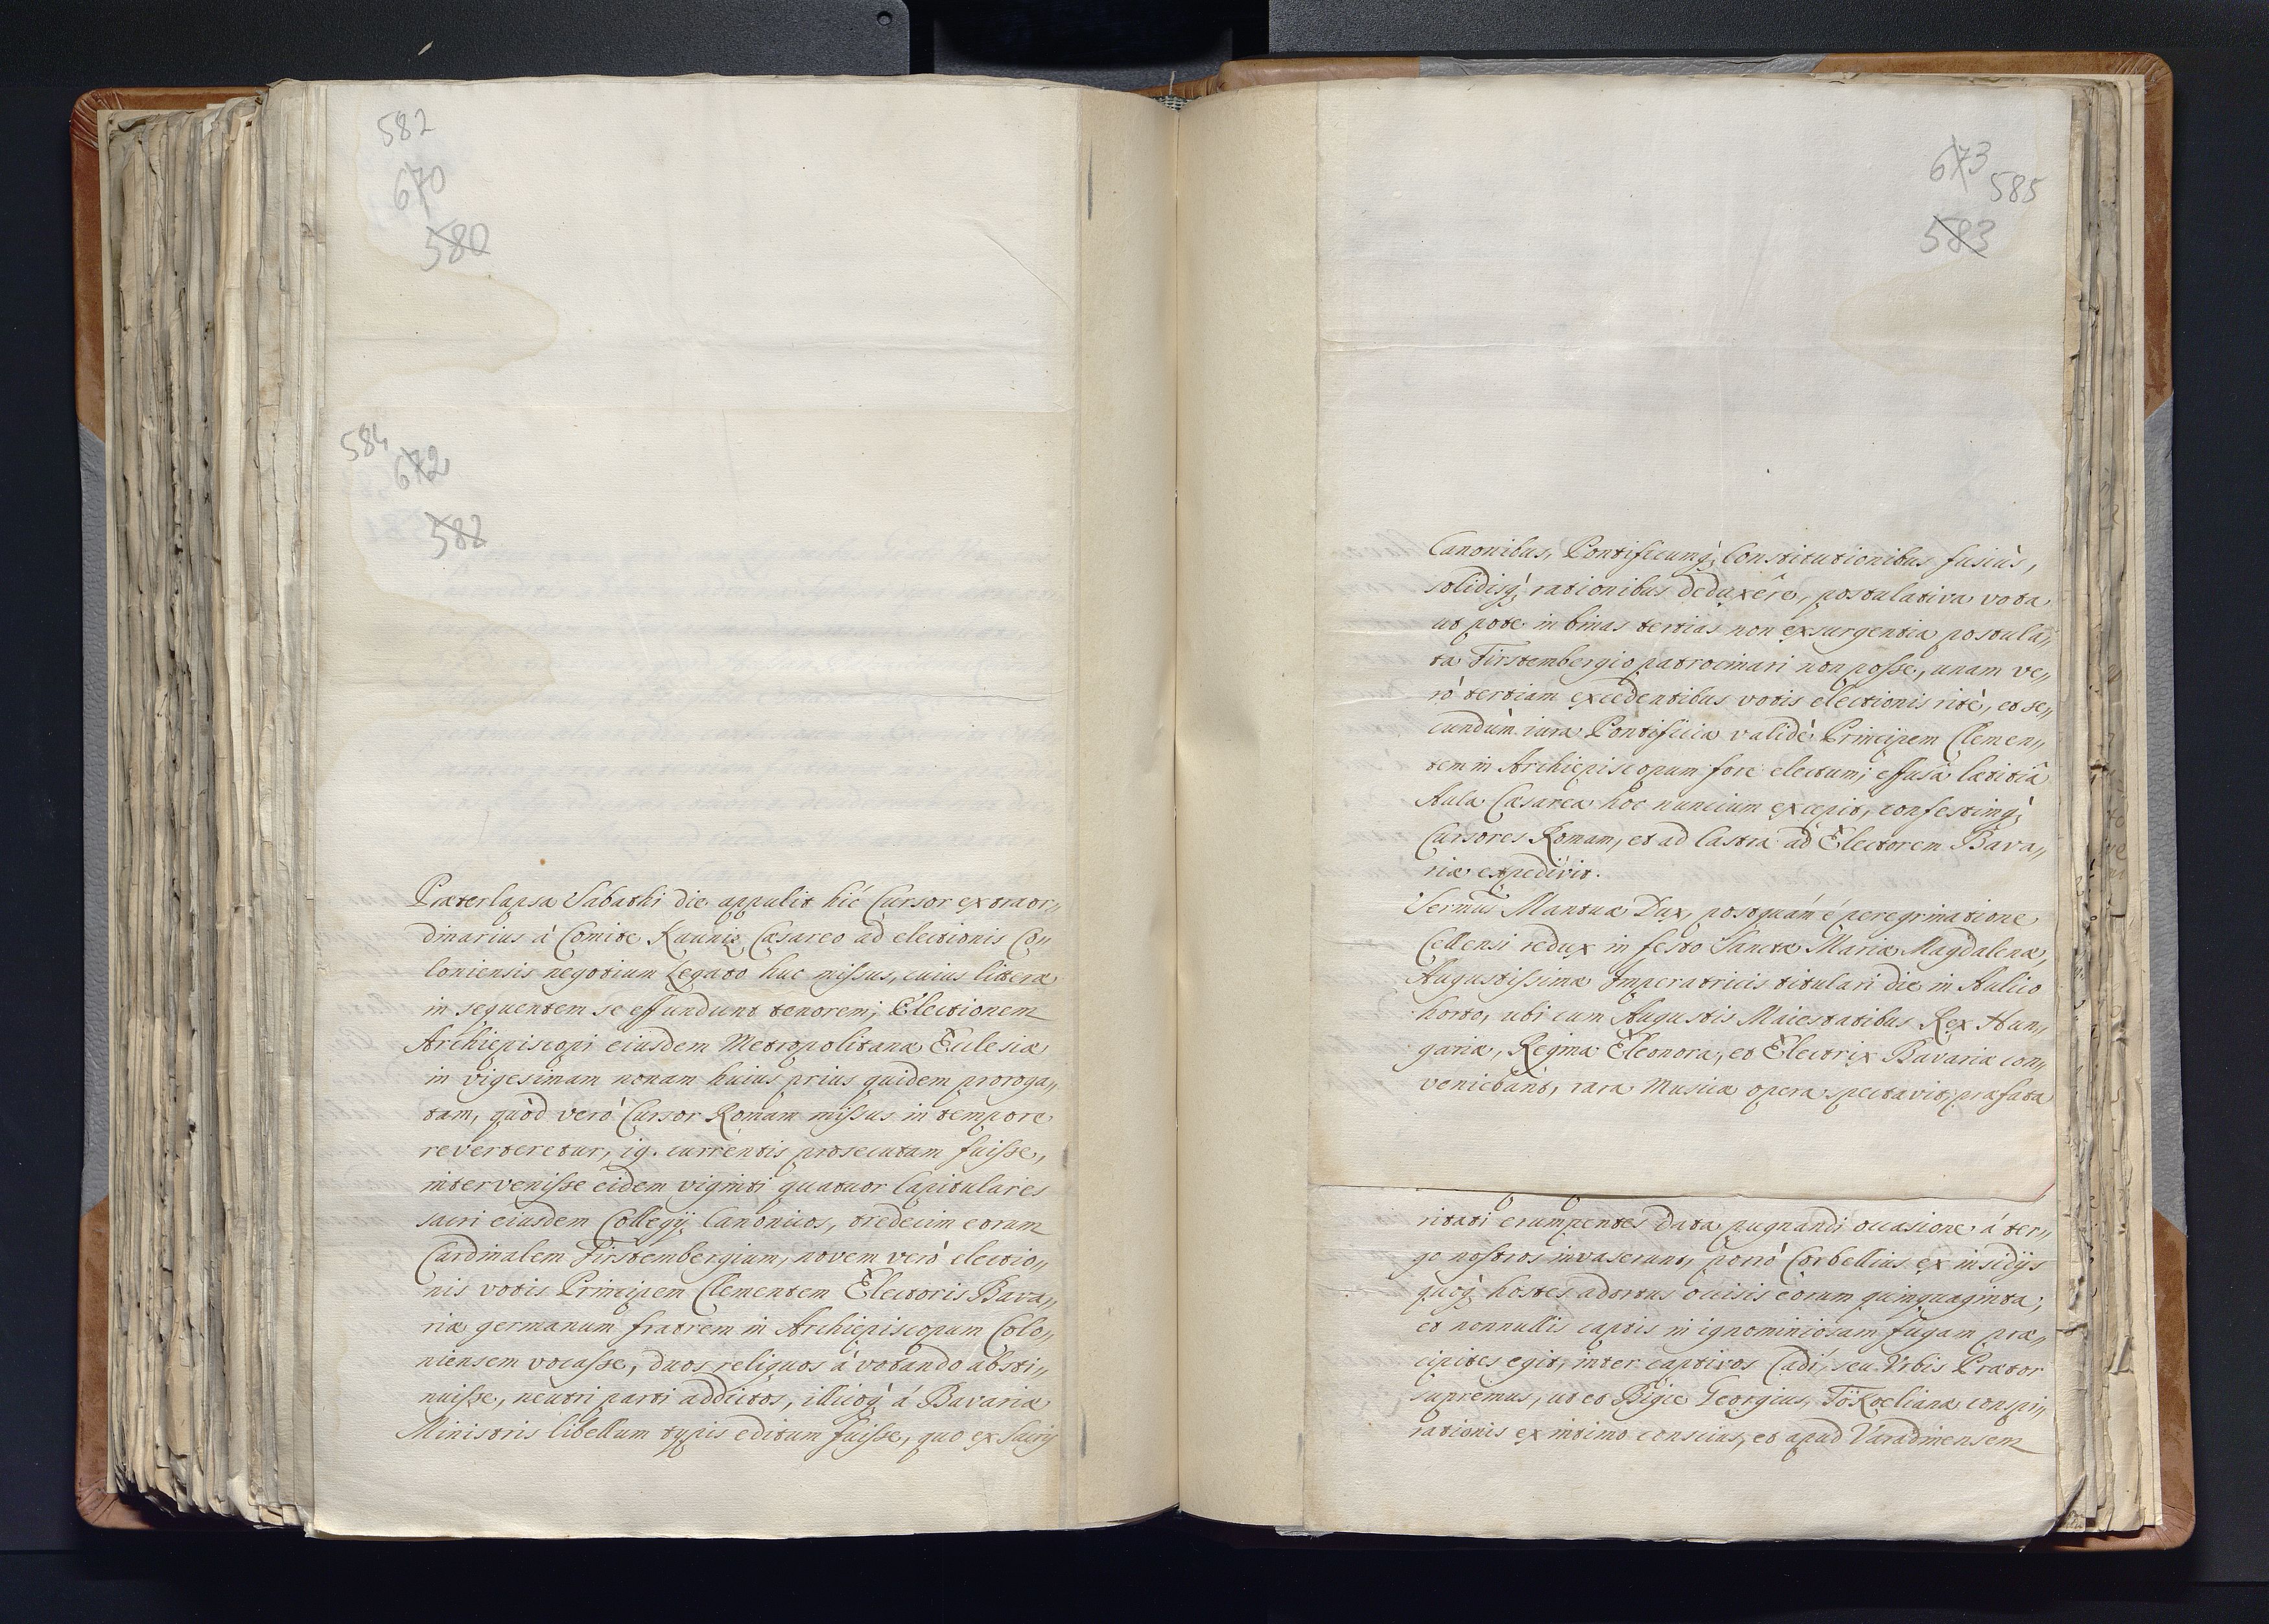 582
670
580
584
672
582
Præterlapsa Sabathi die appulit hic Cursor extraor„
dinarius à Comite Kauniz Cæsareo ad electionis Co„
loniensis negotium Legato huc missus, cuius litteræ
in sequentem se effundunt tenorem; Electionem
Archiepiscopi eiusdem Metropolitanæ Ecclesiæ
in vigesimam nonam huius prius quidem proroga„
tam, quòd verò Cursor Romam missus in tempore
reverteretur, 19. currentis prosecutam fuisse,
intervenisse eidem viginti quatuor Capitulares
sacri eiusdem Collegij Canonicos, tredecim eorum
Cardinalem Firstembergium, novem verò electio„
nis votis Principem Clementem Electoris Bava„
riæ germanum fratrem in Archiepiscopum Colo„
niensem vocasse, duos reliquos à votando absti„
nuisse, neutri parti addictos, illicoq; à Bavariæ
Ministris libellum typis editum fuisse, quo ex Sacris
673
585
583
Canonibus, Pontificumq; Constitutionibus fusiùs,
solidisq; rationibus deduxêre, postulativa vota
ut pote in binas tertias non exsurgentia postula„
ta Firstembergio patrocinari non posse, unam ve„
rò tertiam excedentibus votis electionis ritè, et se„
cundùm iura Pontificia validè Principem Clemen„
tem in Archiepiscopum fore electum; effusâ lætitiâ
Aula Cæsarea hoc nuncium excepit, confestimq;
Cursores Romam, et ad Castra ad Electorem Bava„
riæ expedivit.
Sermũs Mantuæ Dux, postquám é peregrinatione
Cellensi redux in festo Sanctæ Mariæ Magdalenæ,
Augustissimæ Imperatricis titulari die in Aulico
horto, ubi cum Augustis Maiestatibus Rex Hun„
gariæ, Regina Eleonora, et Electrix Bavariæ con„
veniebant, rara Musica opera spectavit, præfata
ritati erumpentes data pugnandi occasione á ter„
go nostros invaserunt, porrò Corbellius ex insidijs
quoq; hostes adortus occisis eorum quinquaginta,
et nonnullis captis in ignominiosam fugam præ„
cipites egit, inter captivos Cadi, seu Urbis Prætor
supremus, ut et Bigie Georgius, Tökoelianæ conspi„
rationis ex intimo conscius, et apud Varadinensem